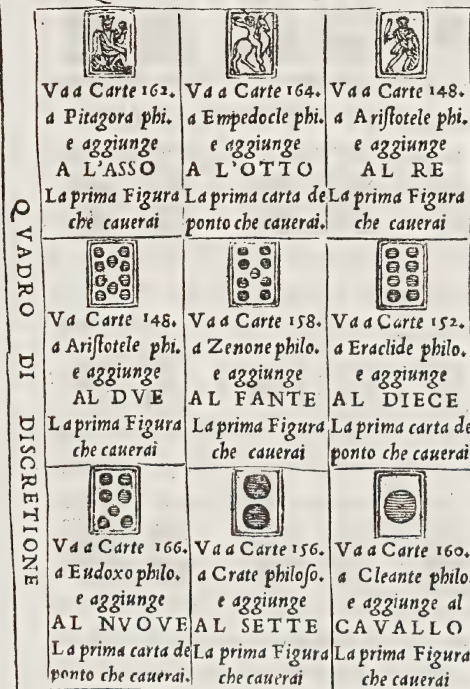 QVADRO DI DISCRETIONE
Va a Carte 162.
a Pitagora phi.
e aggiunge
A L'ASSO
La prima Figura
che cauerai
Va a Carte 164.
a Empedocle phi.
e aggiunge
A L'OTTO
La prima carta de
ponto che cauerai.
Va a Carte 148.
a Ariſtotele phi.
e aggiunge
AL RE
La prima Figura
che cauerai
Va Carte 148.
a Ariſtotele phi.
e aggiunge
AL DVE
La prima Figura
che cauerai
Va a Carte 158.
a Zenone philo.
e aggiunge
AL FANTE
La prima Figura
che cauerai
Va a Carte 152.
a Eraclide philo.
e aggiunge
AL DIECE
La prima carta de
ponto che cauerai
Va a Carte 166.
a Eudoxo philo.
e aggiunge
AL NVOVE
La prima carta de
ponto che cauerai.
Va a Carte 156.
a Crate philoſo.
e aggiunge
AL SETTE
La prima Figura
che cauerai
Va a Carte 160.
a Cleante philo
e aggiunge al
CAVALLO
La prima Figura
che cauerai